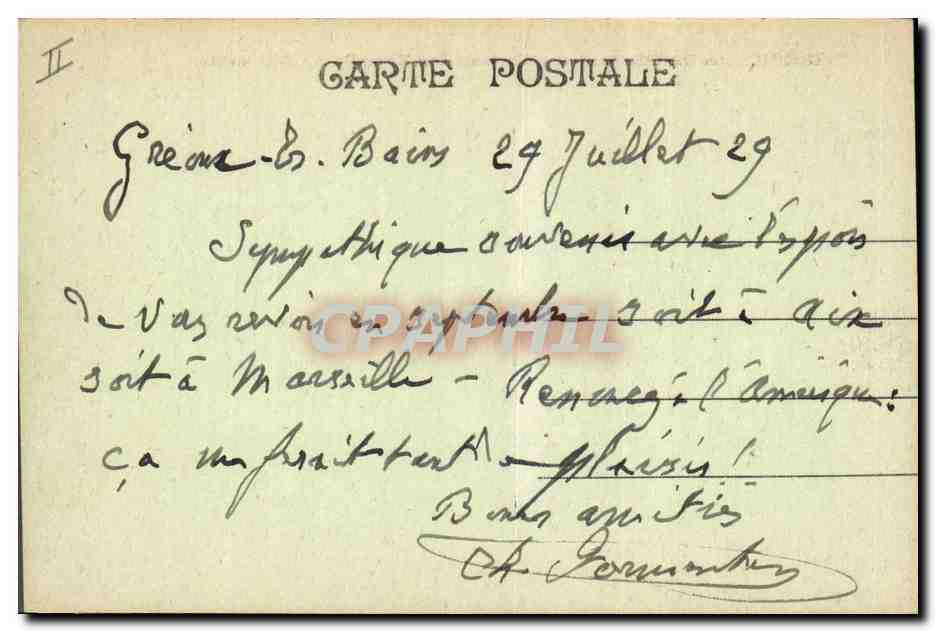 II
CARTE POSTALE
Gréoux-les-Bains 29 Juillet 29
Sympathique souvenir avec l'espoir
de vous revoir en septembre soit à Aix
soit à Marseille - Renoncez à l'Amérique :
ça me ferait tant de plaisir !
Bonnes amitiés
Ch.
CPAPHIL